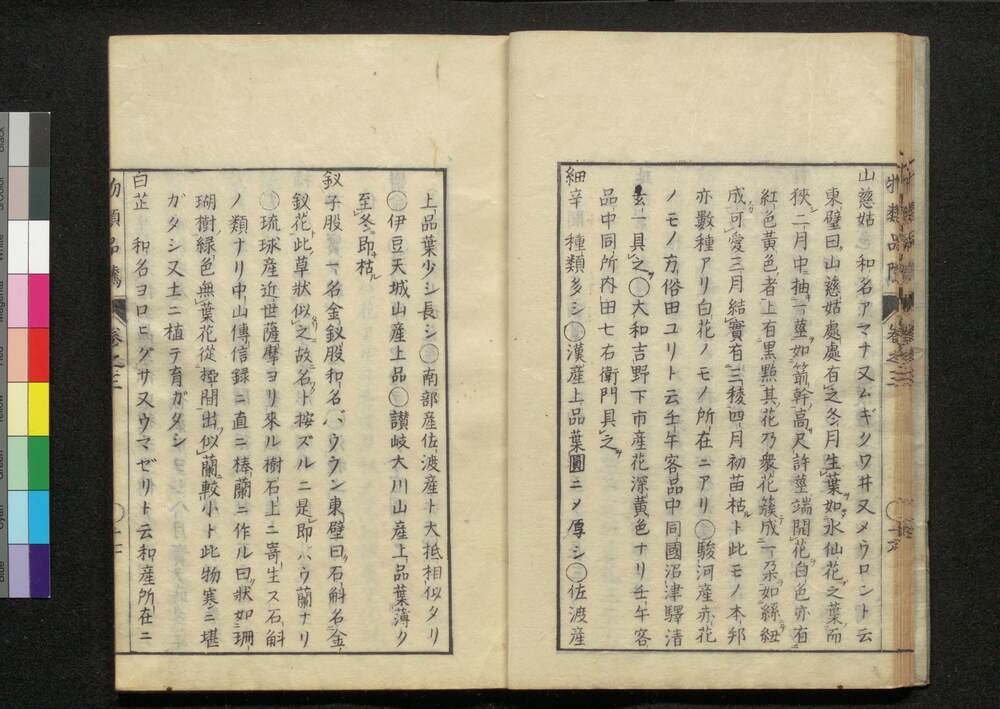 山慈姑 和名アマナ又ムギクワ井又メウロントト云
東壁曰山慈姑處處有之冬月生葉如水仙花之葉而
狹二月中抽一莖如箭幹高尺許莖端開花白色亦有
紅色黃色者上有黑點其花乃衆花簇成一朶如絲紐
成可愛三月結實有三稜四月初苗枯ト此モノ本邦
亦數種アリ白花ノモノ所在ニアリ〇駿河產赤花
ノモノ方俗田ユリト云壬午客品中同國沼津驛清
玄一具之〇大和吉野下市產花深黃色ナリ壬午客
品中同所内田七右衛門具之
細辛 種類多シ〇漢產上品葉圓ニメ厚シ〇佐渡產
上品葉少シ長シ〇南部產佐渡產ト大抵相似タリ
〇伊豆天城山產上品〇讃岐大川山產上品葉薄ク
至冬即枯
釵子股 一名金釵股和名バウラン東壁曰石斛名金
釵花此草狀似之故名ト按ズルニ是即バウ蘭ナリ
〇琉球產近世薩摩ヨリ來ル樹石上ニ寄生ス石斛
ノ類ナリ中山傳信録ニ直ニ棒蘭ニ作ル曰狀如珊
瑚樹緑色無葉花從椏間出似蘭較小ト此物寒ニ堪
ガタシ又土ニ植テ育ガタシ
白芷 和名ヨロヒグサ又ウマゼリト云和產所在ニ
物類品隲 卷之三